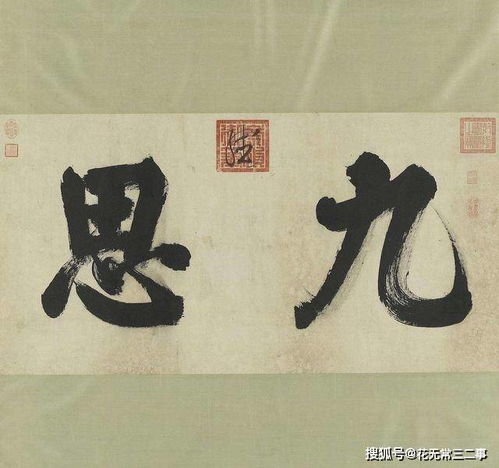 九思
搜狐号@花无常三二事